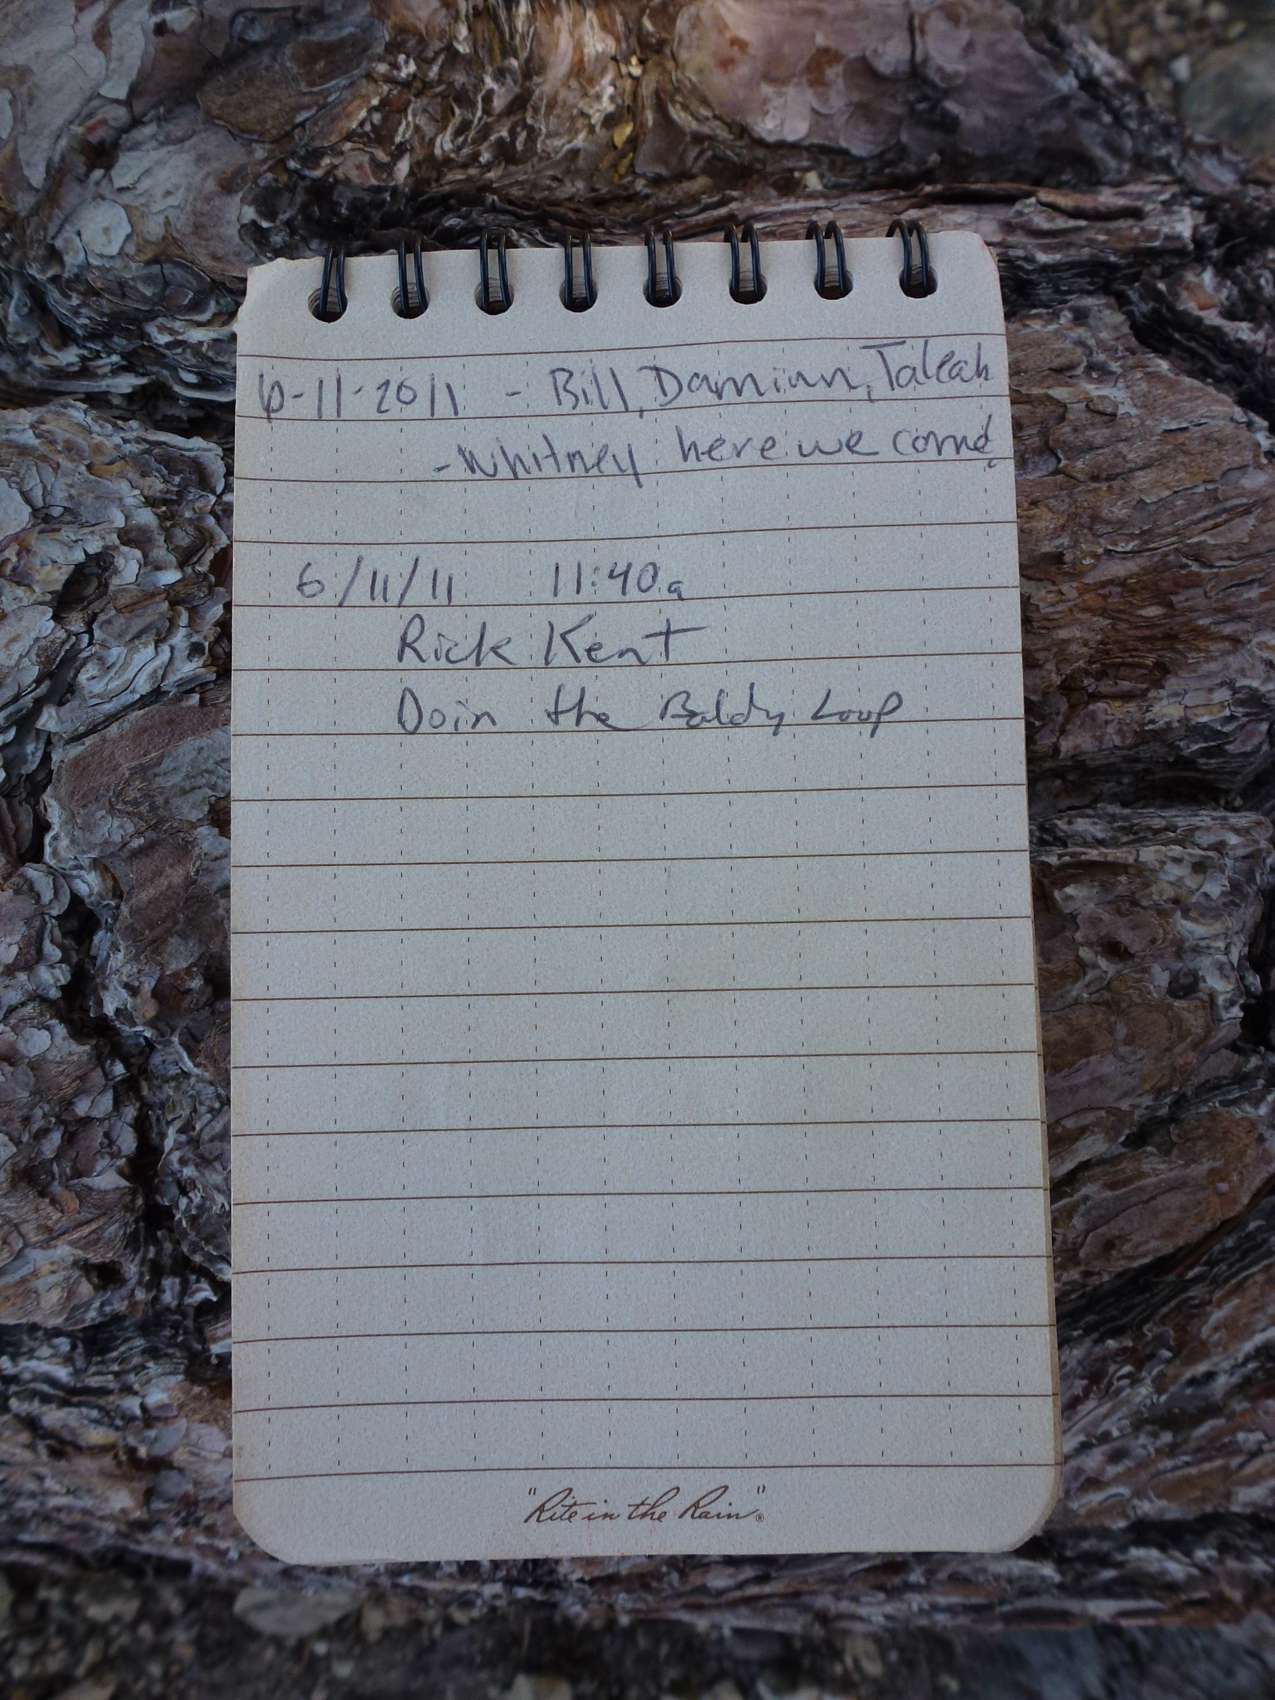 6-11-2011 - Bill, Damian, Taleah
-Whitney here we come!
6/11/11 11:40a
Rick Kent
Doin the Baldy Loop
"Rite in the Rain"®